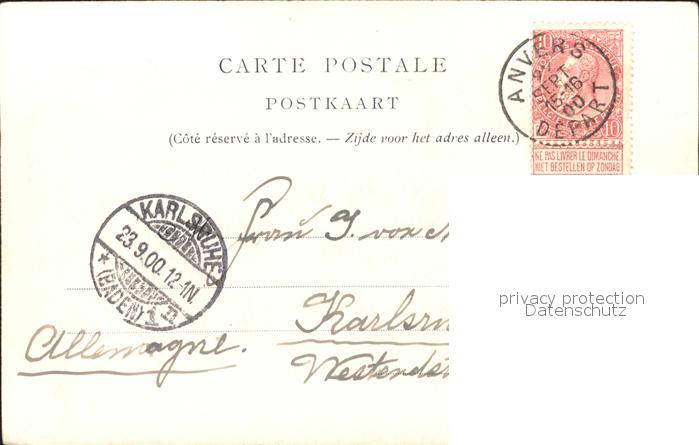 CARTE POSTALE
POSTKAART
(Côté réservé à l'adresse. — Zijde voor het adres alleen.)
ANVERS
SEPT
16
00
DÉPART
10
10
NE PAS LIVRER LE DIMANCHE
NIET BESTELLEN OP ZONDAG
KARLSRUHE
23.9.00.12-1N.
* (BADEN) 1
Frau J. von
privacy protection
Datenschutz
Karlsru
Allemagne.
Westends